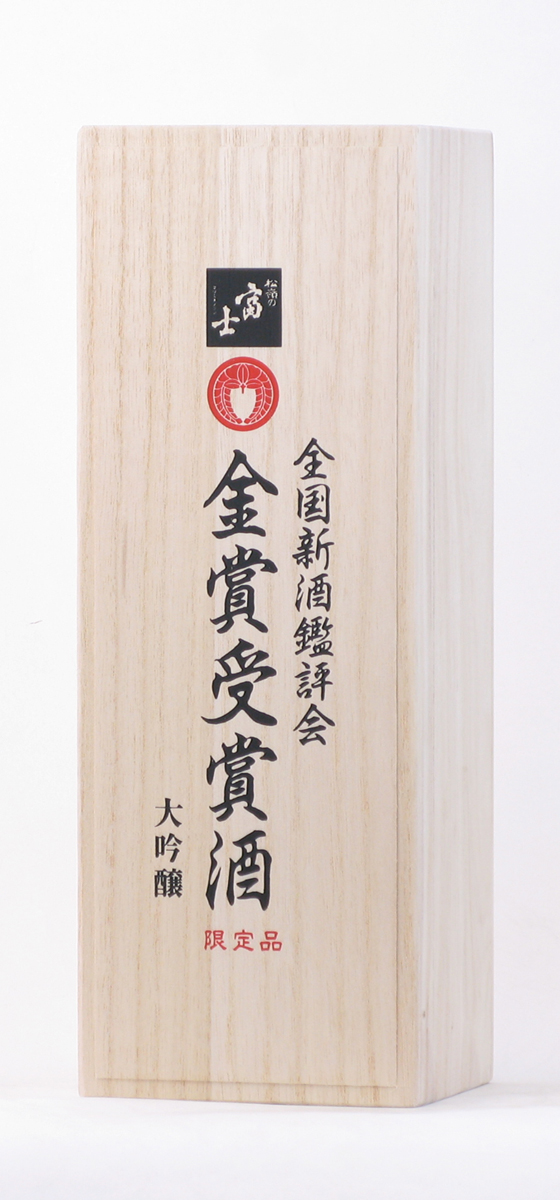 松嶺の
富士
全国新酒鑑評会
金賞受賞酒
大吟醸
限定品